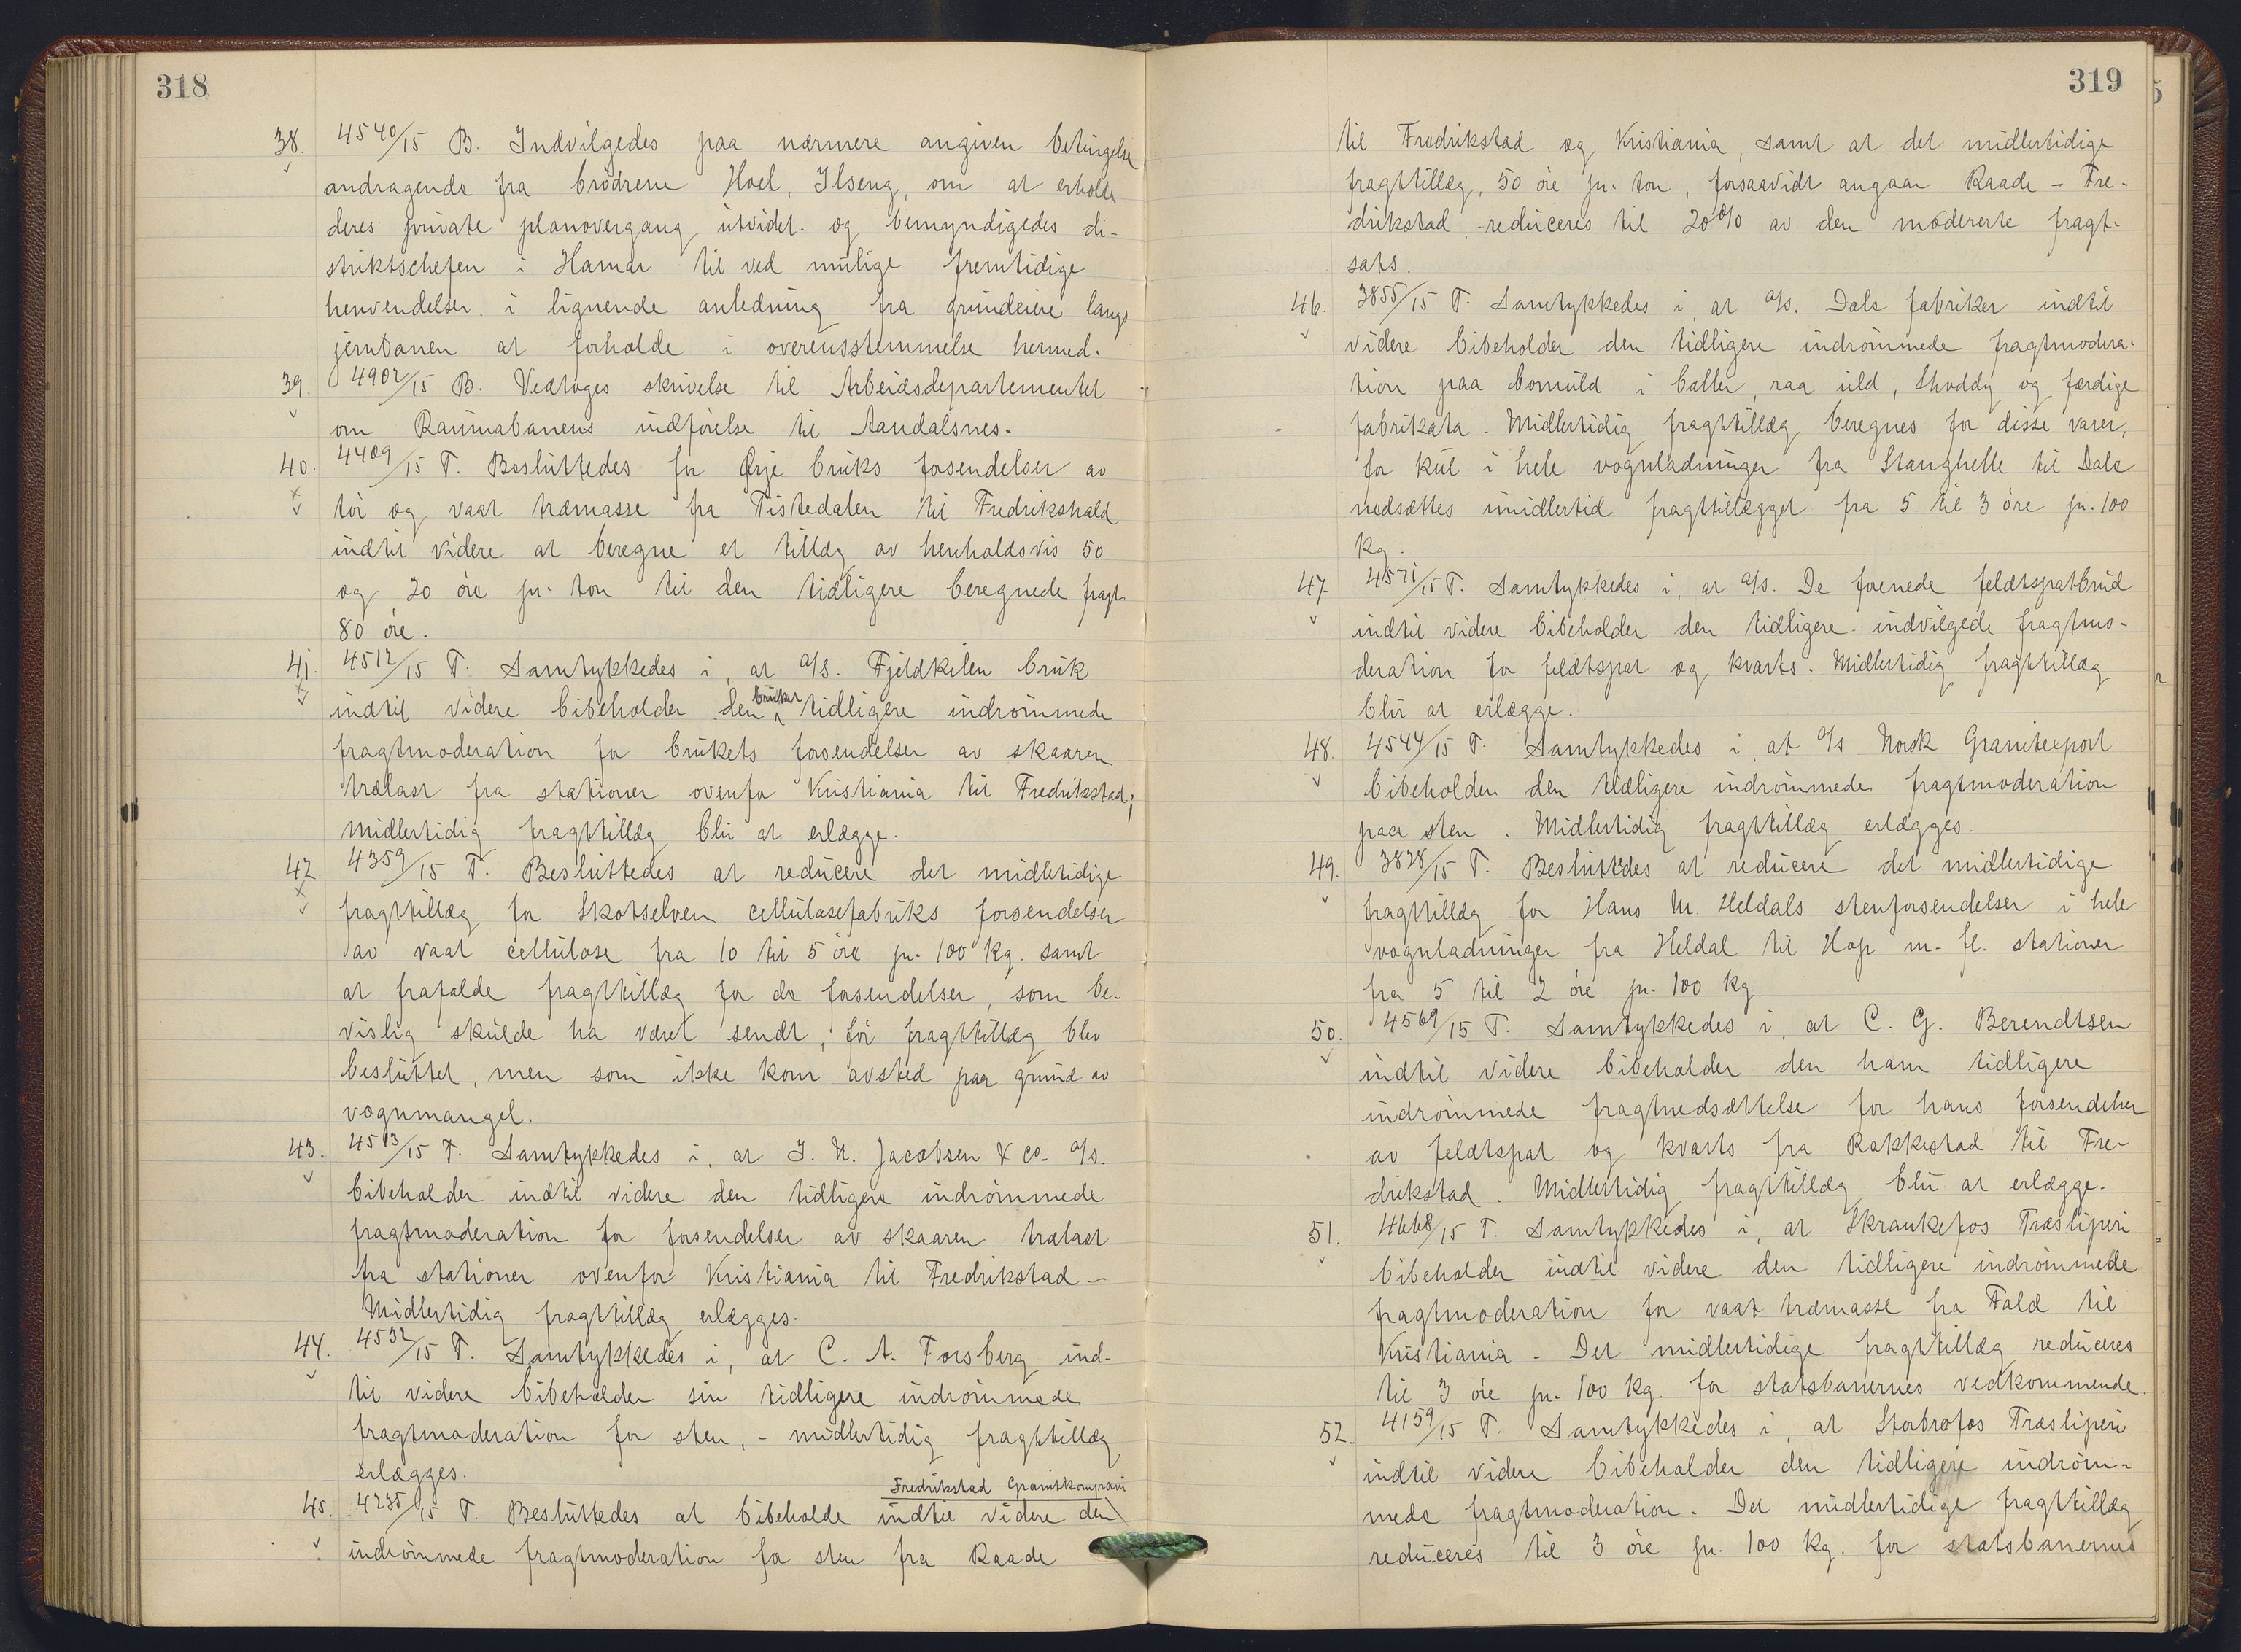 318
38. 4540/15 B. Indvilgedes paa nærmere angiven betingelse
andragende fra brødrene Hoel, Ilseng, om at erholde
deres private planovergang utvidet og bemyndigedes di-
striktschefen i Hamar til ved mulige fremtidige
henvendelser i lignende anledning fra grundeiere langs
jernbanen at forholde i overensstemmelse hermed.
39. 4902/15 B. Vedtoges skrivelse til Arbeidsdepartementet
om Raumabanens indførelse til Aandalsnes.
40. 4409/15 T. Besluttedes for Ørje bruks forsendelser av
tør og vaat træmasse fra Tistedalen til Fredrikshald
indtil videre at beregne et tillæg av henholdsvis 50
og 20 øre pr. ton til den tidligere beregnede fragt
80 øre.
41. 4512/15 T. Samtykkedes i, at a/s. Fjeldkilen bruk
indtil videre bibeholder den bruket tidligere indrømmede
fragtmoderation for brukets forsendelser av skaaren
trælast fra stationer ovenfor Kristiania til Fredrikstad;
midlertidig fragttillæg blir at erlægge.
42. 4359/15 T. Besluttedes at reducere det midlertidige
fragttillæg for Skotselven cellulosefabriks forsendelser
av vaat cellulose fra 10 til 5 øre pr. 100 kg. samt
at frafalde fragttillæg for de forsendelser, som be-
vislig skulde ha været sendt, før fragttillæg blev
besluttet, men som ikke kom avsted paa grund av
vognmangel.
43. 4513/15 T. Samtykkedes i, at J. N. Jacobsen & Co. a/s.
bibeholder indtil videre den tidligere indrømmede
fragtmoderation for forsendelser av skaaren trælast
fra stationer ovenfor Kristiania til Fredrikstad. -
Midlertidig fragttillæg erlægges.
44. 4532/15 T. Samtykkedes i, at C. A. Forsberg ind-
til videre bibeholder sin tidligere indrømmede
fragtmoderation for sten, - midlertidig fragttillæg
erlægges.
Fredrikstad Granitkompani
45. 4235/15 T. Besluttedes at bibeholde indtil videre den
indrømmede fragtmoderation for sten fra Raade
319
til Fredrikstad og Kristiania, samt at det midlertidige
fragttillæg, 50 øre pr. ton, forsaavidt angaar Raade - Fre-
drikstad, reduceres til 20% av den modererte fragt-
sats.
46. 3855/15 T. Samtykkedes i, at a/s. Dale fabriker indtil
videre bibeholder den tidligere indrømmede fragtmodera-
tion paa bomuld i baller, raa uld, Shoddy og færdige
fabrikata. Midlertidig fragttillæg beregnes for disse varer,
for kul i hele vognladninger fra Stanghelle til Dale
nedsættes imidlertid fragttillægget fra 5 til 3 øre pr. 100
kg.
47. 4571/15 T. Samtykkedes i, at a/s. De forenede feldtspatbrud
indtil videre bibeholder den tidligere indvilgede fragtmo-
deration for feldtspat og kvarts. Midlertidig fragttillæg
blir at erlægge.
48. 4544/15 T. Samtykkedes i, at a/s Norsk Granitexport
bibeholder den tidligere indrømmede fragtmoderation
paa sten. Midlertidig fragttillæg erlægges.
49. 3828/15 T. Besluttedes at reducere det midlertidige
fragttillæg for Hans M. Heldals stenforsendelser i hele
vognladninger fra Heldal til Hop m. fl. stationer
fra 5 til 2 øre pr. 100 kg.
50. 4569/15 T. Samtykkedes i, at C. G. Berendtsen
indtil videre bibeholder den ham tidligere
indrømmede fragtnedsættelse for hans forsendelser
av feldtspat og kvarts fra Rakkestad til Fre-
drikstad. Midlertidig fragttillæg blir at erlægge.
51. 4668/15 T. Samtykkedes i, at Skrankefos Træsliperi
bibeholder indtil videre den tidligere indrømmede
fragtmoderation for vaat træmasse fra Fald til
Kristiania. Det midlertidige fragttillæg reduceres
til 3 øre pr. 100 kg. for statsbanernes vedkommende.
52. 4159/15 T. Samtykkedes i, at Storbrofos Træsliperi
indtil videre bibeholder den tidligere indrøm-
mede fragtmoderation. Det midlertidige fragttillæg
reduceres til 3 øre pr. 100 kg. for statsbanernes